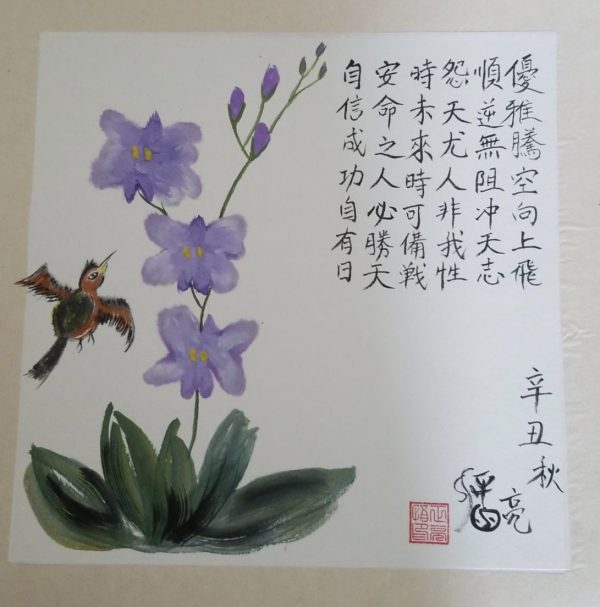 優雅騰空向上飛
順逆無阻冲天志
怨天尤人非我性
時未來時可備戰
安命之人必勝天
自信成功自有日
辛丑秋
亮